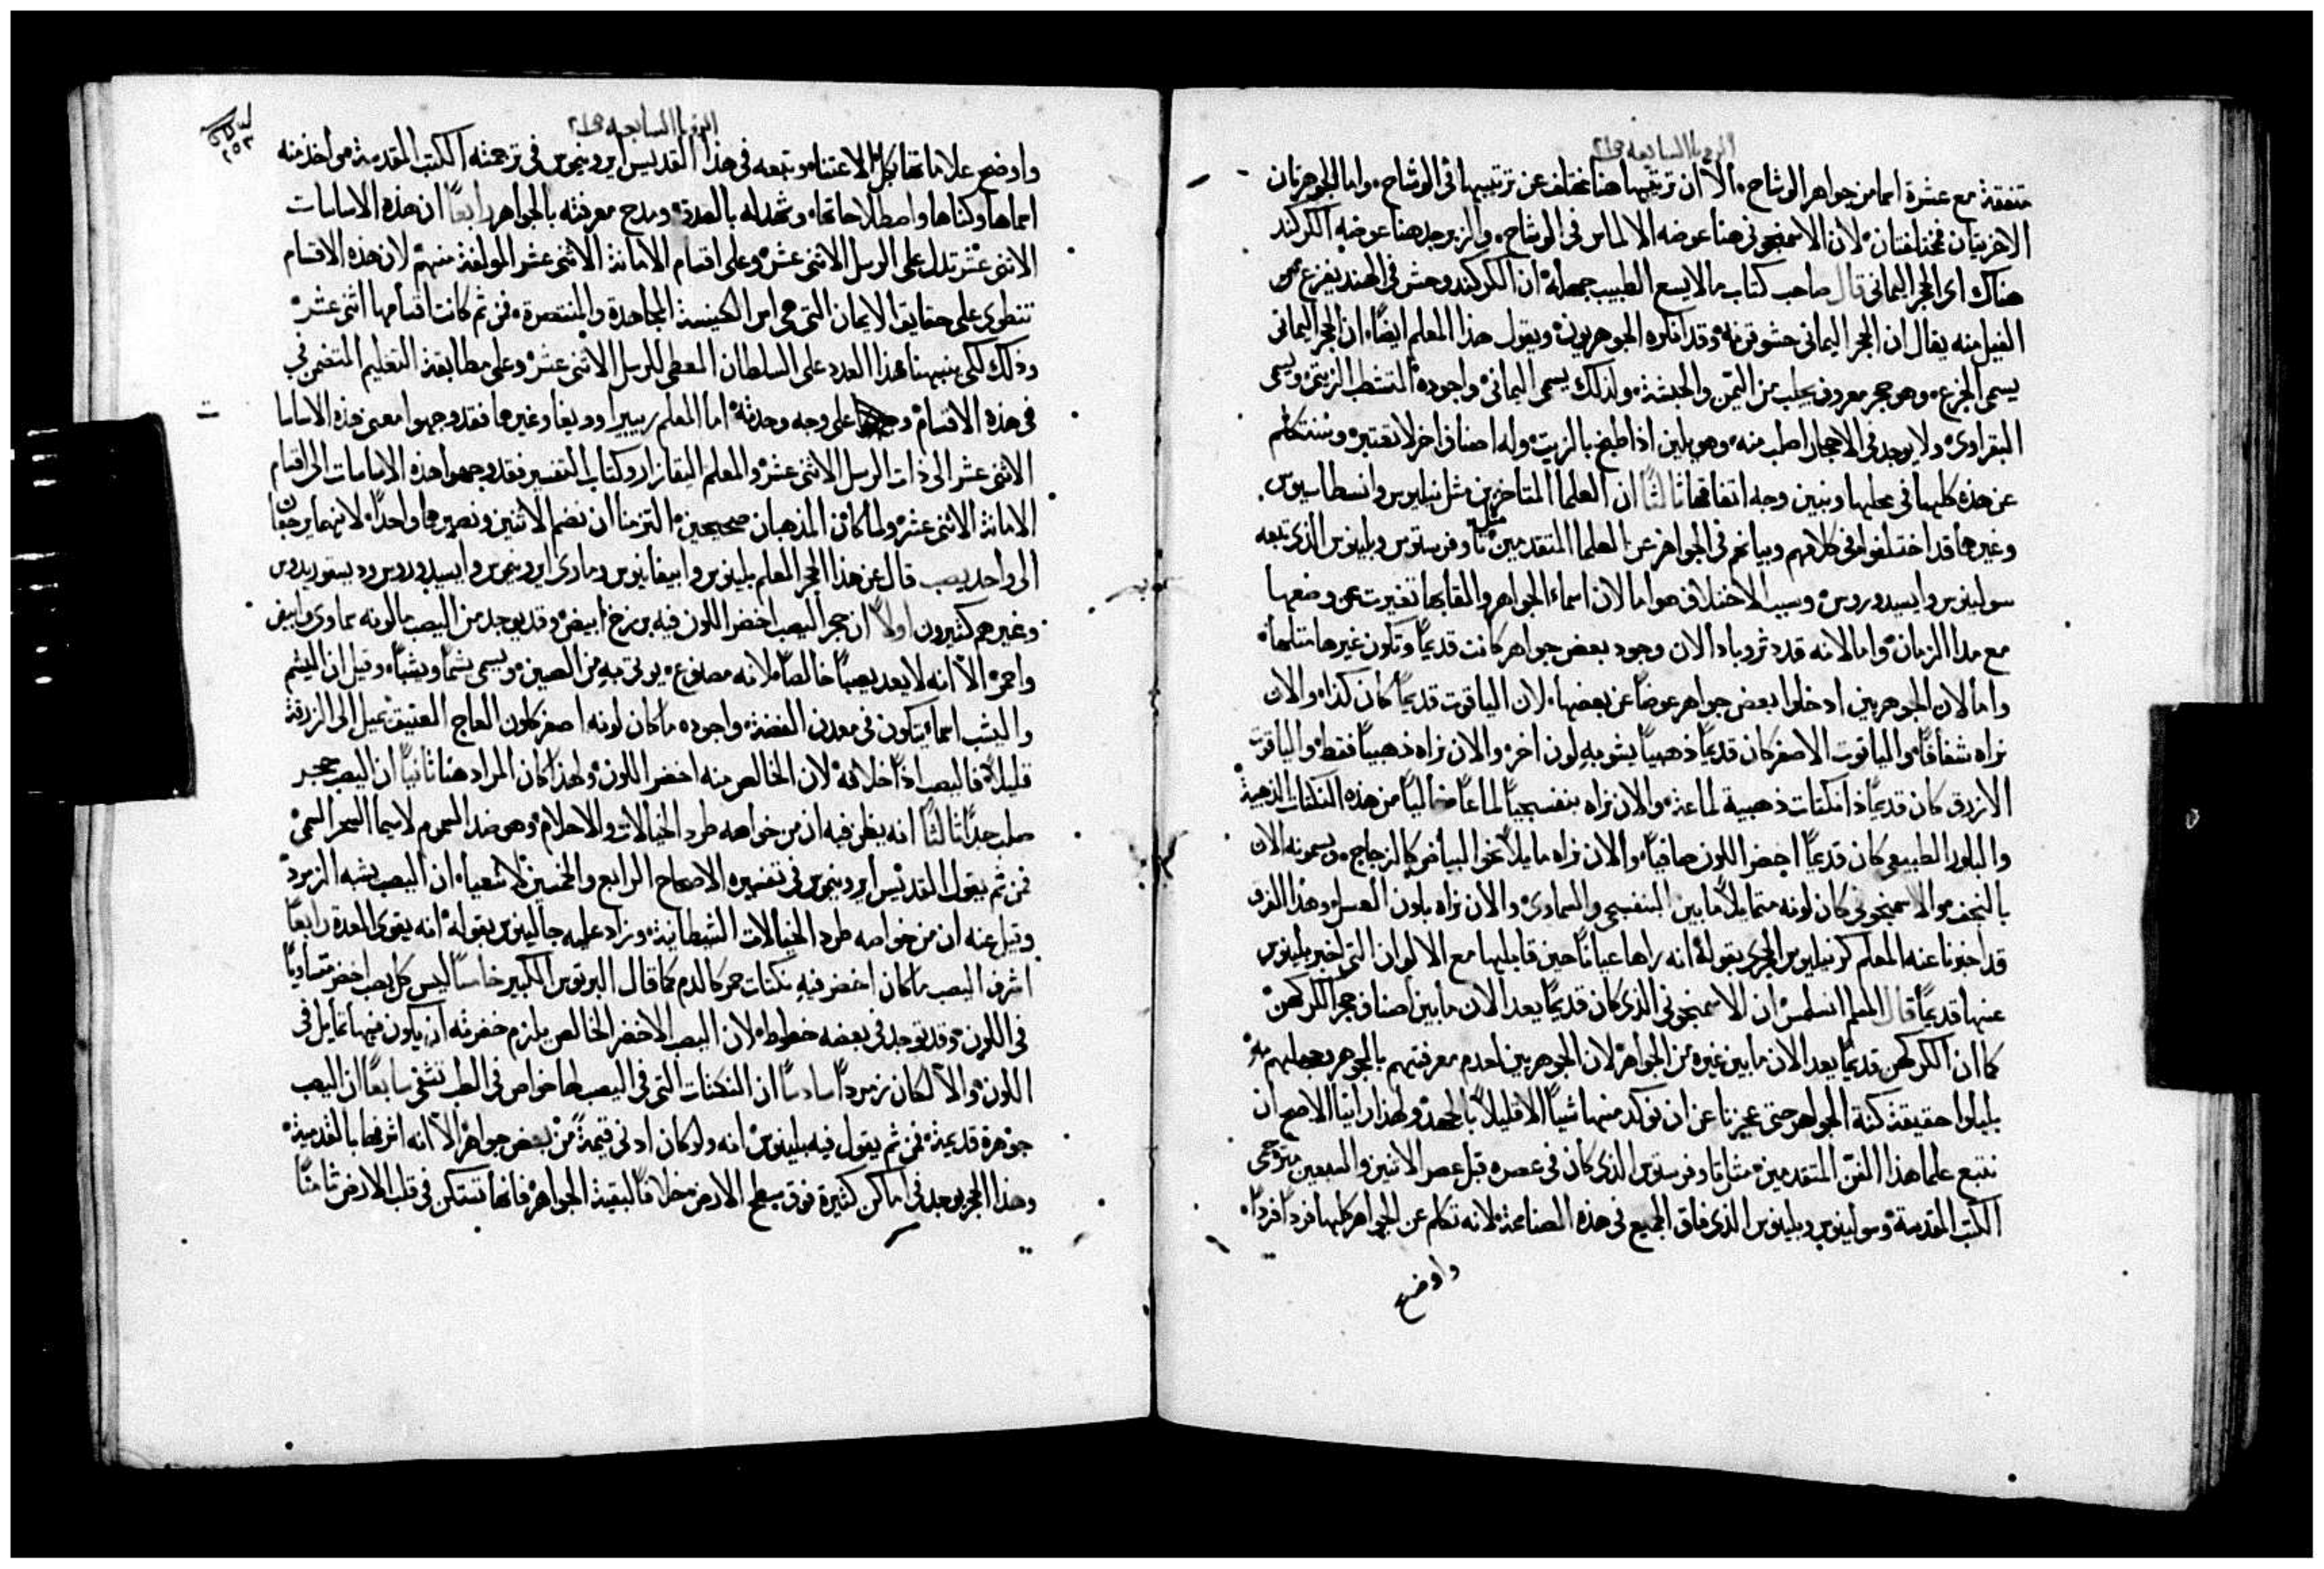 الرويا السابعه ص٢١
متفقة مع عشرة اسما من جواهر الوشاح. الا ان ترتيبها هنا مختلف عن ترتيبها في الوشاح. واما الجوهرتان
الاخريتان فمختلفتان لان الاسمنجوني هنا عوضه الالماس في الوشاح. والزبرجد هنا عوضه الكركند
هناك اي الحجر اليماني قال صاحب كتاب مالايسع الطبيب جهله ان الكركند وحش في الهند يفزع من
الفيل منه يقال ان الحجر اليماني حشو قرنه وقد انكره الجوهريون ويقول هذا المعلم ايضًا ان الحجر اليماني
يسمى الجزع. وهو حجر معروف يجلب من اليمن والحبشة. ولذلك يسمى اليماني واجوده المشطب الزيتي ويسمى
البقراوي ولا يوجد في الاحجار اصلب منه. وهو يلين اذا طبخ بالزيت وله اصناف اخر لا تعتبر وسنتكلم
عن هذه كلها في محلها ونبين وجه اتفاقها ثالثًا ان العلما المتاخرين مثل نيليوس وانسطاسيوس
وغيرهما قد اختلفوا في كلامهم وبيانهم في الجواهر عن العلما المتقدمين مثل ثاوفرستوس وبلينوس الذي تبعه
سولينوس وايسيدوروس وسبب الاختلاف هو اما لان اسماء الجواهر والقابها تغيرت عن وضعها
مع مدا الزمان واما لانه قد دثر وباد الان وجود بعض جواهر كانت قديمًا وتكون غيرها مثلها
واما لان الجوهريين ادخلوا بعض جواهر عوضًا عن بعضها. لان الياقوت قديمًا كان كذا والان
نراه شفافًا والياقوت الاصفر كان قديمًا ذهبيًا يشوبه لون اخر والان نراه ذهبيًا فقط والياقوت
الازرق كان قديمًا ذا نكتات ذهبية لماعة والان نراه بنفسجيًا لماعًا خاليًا من هذه النكتات الذهبية
والبلور الطبيعي كان قديمًا اخضر اللون صافيًا والان نراه مايلاً نحو البياض كالزجاج. ويسمونه الان
بالنجف والاسمنجوني كان لونه متمايلاً ما بين البنفسجي والسماوي والان نراه بلون العسل وهذا الفرق
قد اخبرنا عنه المعلم كرنيليوس الحجري بقوله انه راها عيانًا حين قابلها مع الالوان التي اخبر بلينوس
عنها قديمًا قال المعلم انسلمس ان الاسمنجوني الذي كان قديمًا يعد الان ما بين اصناف حجر الكركهن
كما ان الكركهن قديمًا يعد الان ما بين غيره من الجواهر لان الجوهريين لعدم معرفتهم بالجوهر بجهلهم
بلبلوا حقيقة كنه الجواهر حتى عجزنا عن ان نوكد منها شيًا الا قليلاً بالجهد ولهذا راينا الاصح ان
نتبع علما هذا الفن المتقدمين مثل ثاوفرستوس الذي كان في عصره قبل عصر الاثنين والسبعين مترجمي
الكتب المقدسة وسولينوس وبلينوس الذي فاق الجميع في هذه الصناعة لانه تكلم عن الجواهر كلها فردًا فردًا
واوضح
الرويا السابعه ص٢١
٢٥٣
واوضح علاماتها بكل الاعتنا وتبعه في هذا القديس ايرونيموس في ترجمته الكتب المقدسة من اخذ منه
اسماها وكناها واصطلاحاتها. وشهد له بالصدق ومدح معرفته بالجواهر رابعًا ان هذه الاساسات
الاثني عشر تدل على الرسل الاثني عشر وعلى اقسام الامانة الاثني عشر المولفة منهم لان هذه الاقسام
تنطوي على حقايق الايمان التي هي اس الكنيسة المجاهدة والمنتصرة. فمن ثم كانت اقسامها اثني عشر
وذلك لكي ينبهنا هذا العدد على السلطان المعطى للرسل الاثني عشر وعلى مطابقة التعليم المتضمن في
في هذه الاقسام على وجه وحدته اما المعلم ريبيرا وويغا وغيرهما فقد وجهوا معنى هذه الاساسا
الاثني عشر الى ذات الرسل الاثني عشر والمعلم القازار وكتاب التفسير فقد وجهوا هذه الاساسات الى اقسام
الامانة الاثني عشر ولما كان المذهبان صحيحين التزمنا ان نضم الاثنين ونصيرهما واحدًا لانهما يرجعان
الى واحد يصب قال عن هذا الحجر المعلم بلينوس وابيفانيوس وماري ايرونيموس وايسيدوروس وديسقوريدوس
وغيرهم كثيرون اولاً ان حجر اليصب اخضر اللون فيه برزخ ابيض وقد يوجد من اليصب ما لونه سماوي وابيض
واحمر الا انه لا يعد يصبًا خالصًا لانه مصنوع. يوتى به من الصين ويسمى يشمًا ويشبًا. وقيل ان اليشم
واليشب اسما يتكون في معدن الفضة واجوده ما كان لونه اصفر كلون العاج العتيق يميل الى الزرقة
قليلاً. فاليصب اذًا خلافه لان الخالص منه اخضر اللون ولهذا كان المراد هنا ثانيًا ان اليصب حجر
صلب جدًا ثالثًا انه يظن فيه ان من خواصه طرد الخيالات والاحلام وهو ضد السموم لاسيما السحر السمي
فمن ثم يقول القديس ايرونيموس في تفسيره الاصحاح الرابع والخمسين لاشعياء ان اليصب يشبه الزمرد
وقيل عنه ان من خواصه طرد الخيالات الشيطانية وزاد عليه جالينوس بقوله انه يقوي المعدة رابعًا
اشرف اليصب ما كان اخضر فيه نكتات حمر كالدم كما قال البرتوس الكبير خامسًا ليس كل يصب اخضر متساويًا
في اللون وقد توجد في بعضه خطوط لان اليصب الاخضر الخالص يلزم خضرته ان يكون فيها تمايل في
اللون والا لكان زمردًا سادسًا ان النكتات التي في اليصب لها خواص في الطب تشفي سابعًا ان اليصب
جوهرة قديمة. فمن ثم يقول فيه بلينوس انه ولو كان ادنى قيمةً من بعض جواهر الا انه اشرفها بالقدمية
وهذا الحجر يوجد في اماكن كثيرة فوق سطح الارض خلافًا لبقية الجواهر فانها تستكن في قلب الارض ثامنًا